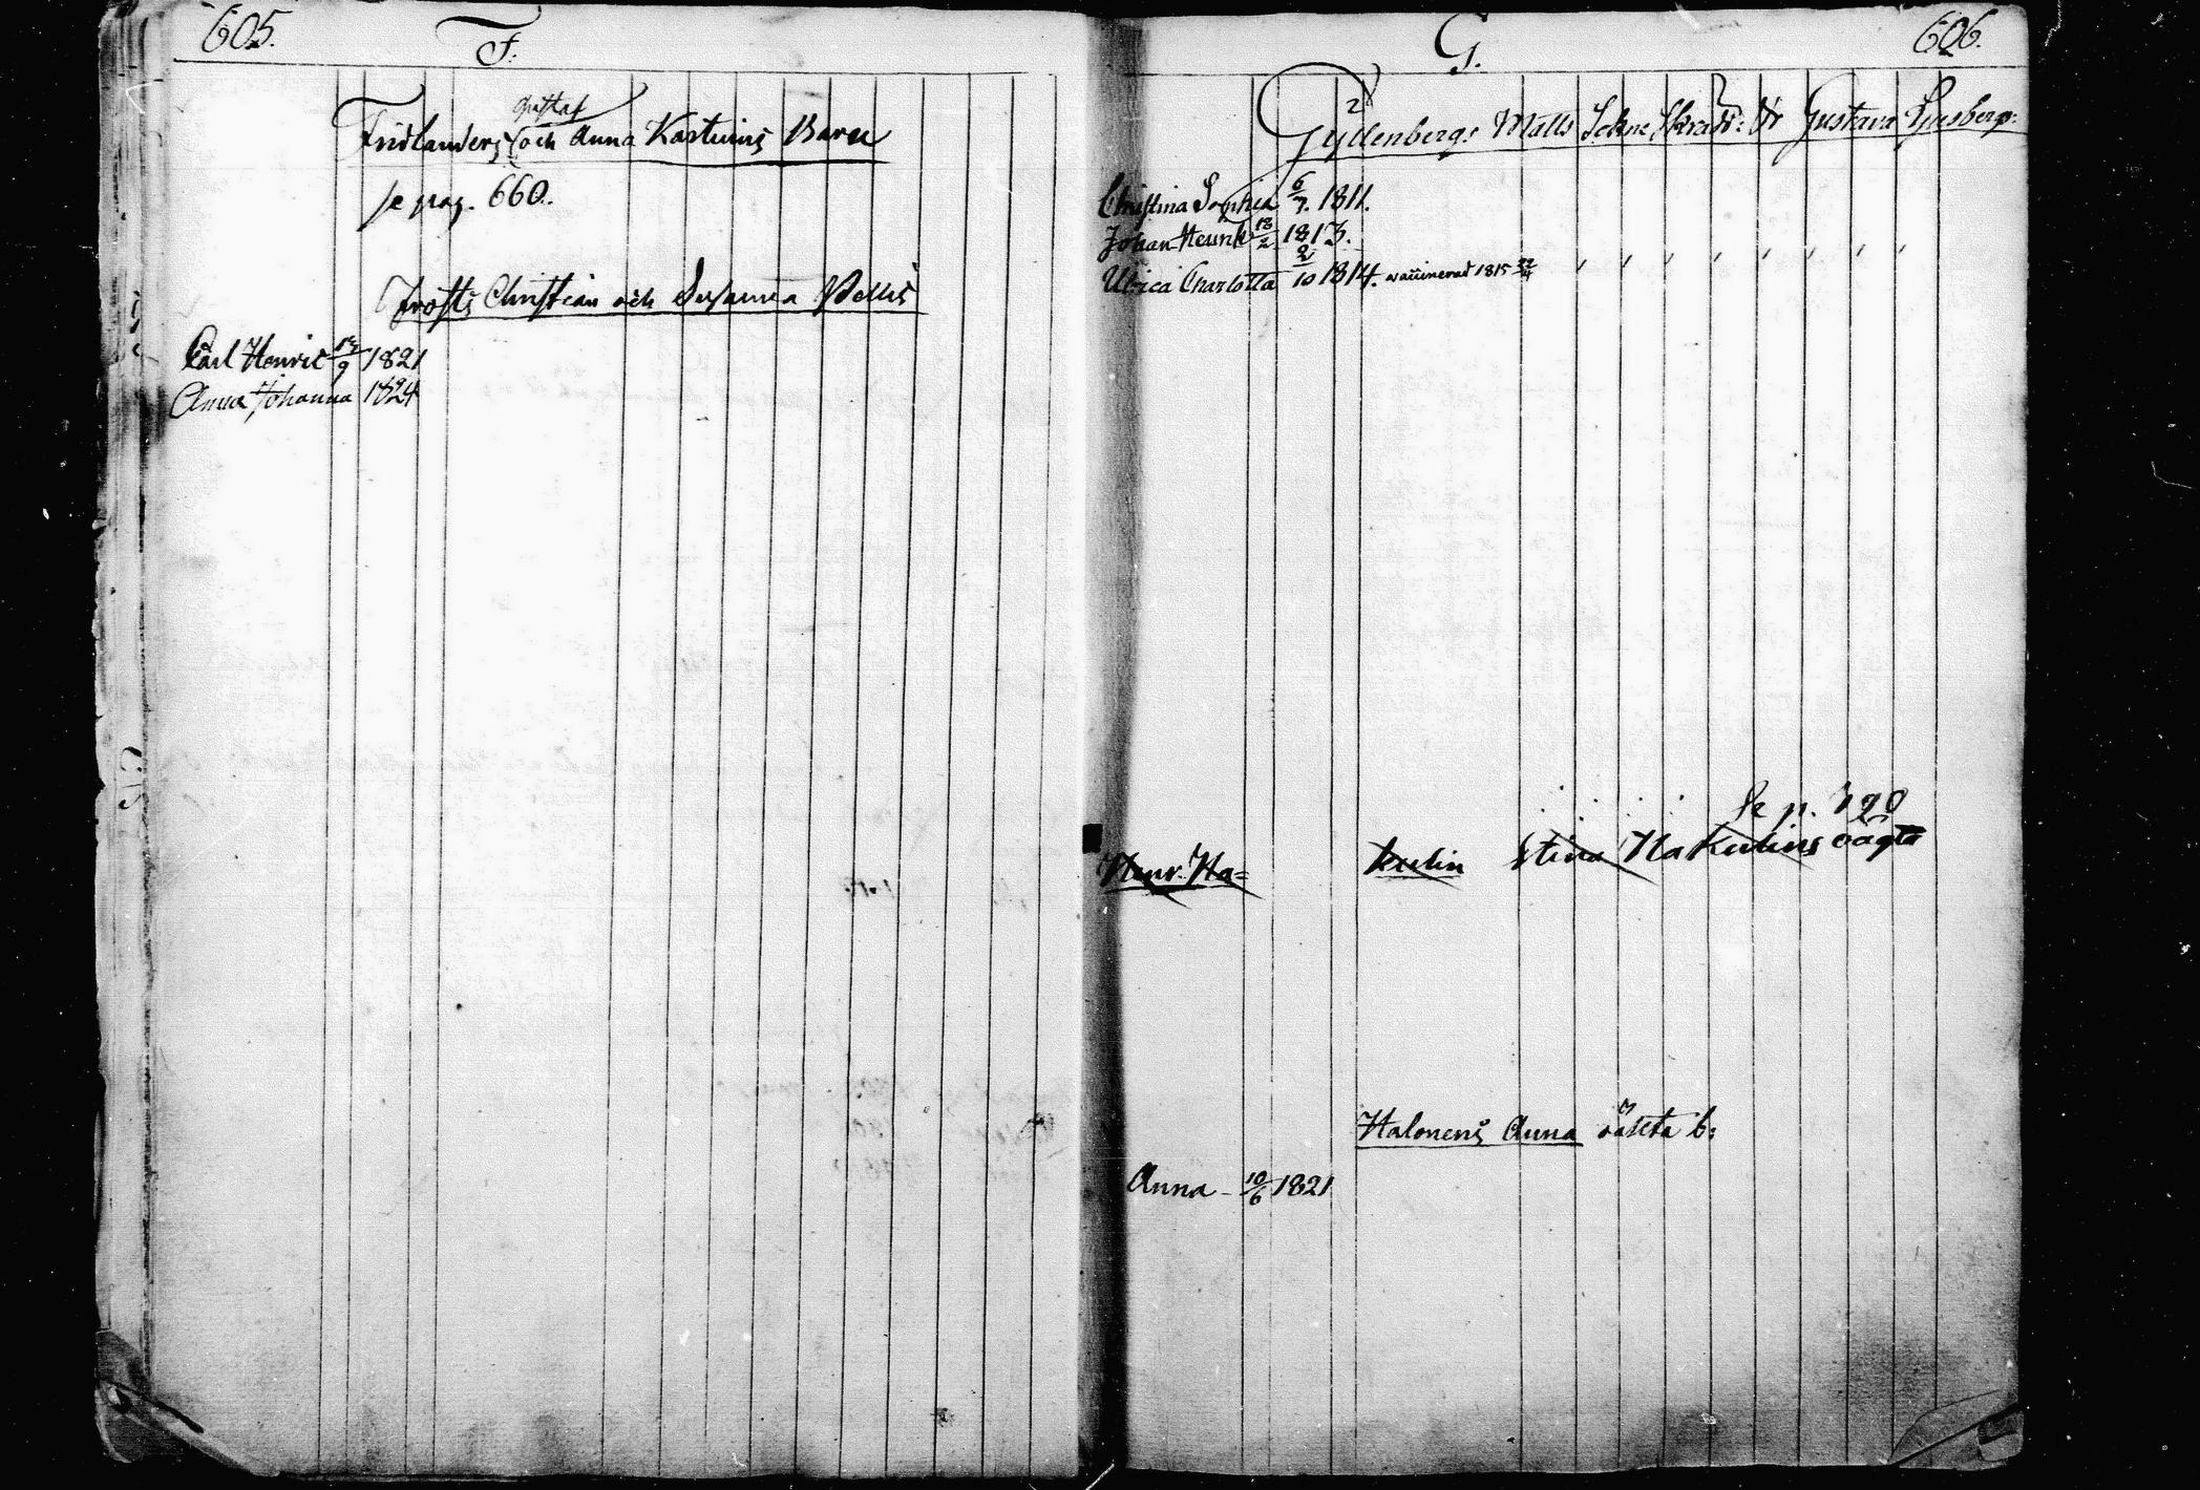 605.
F.
Gustaf
Fridlanders och Anna Kastenis Barn
se pag. 660.
Frosts Christian och Susanna Pellis
Carl Henric 1821
Anna Johanna 1824
606.
G.
Gyllenbergs Matts Gustava
Christina Sophia 6/7. 1811.
Johan Henrik 18/2 1813.
Ulrica Charlotta 2/10 1814. vaccinerad 1815
Se p. 720
Henr. Ha= kulin Stina Hakulins oägta
Halonens Anna oäkta b:
Anna - 10/6 1821